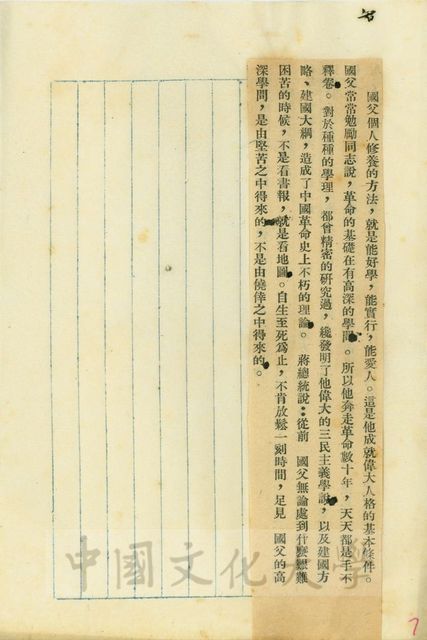 國父個人修養的方法，就是能好學，能實行，能愛人。這是他成就偉大人格的基本條件。
國父常常勉勵同志說，革命的基礎在有高深的學問。所以他奔走革命數十年，天天都是手不
釋卷。對於種種的學理，都曾精密的研究過，纔發明了他偉大的三民主義學說，以及建國方
略、建國大綱，造成了中國革命史上不朽的理論。　蔣總統說：從前　國父無論處到什麼艱難
困苦的時候，不是看書報，就是看地圖。自生至死為止，不肯放鬆一刻時間，足見　國父的高
深學問，是由堅苦之中得來的，不是由僥倖之中得來的。
中國文化大學
7